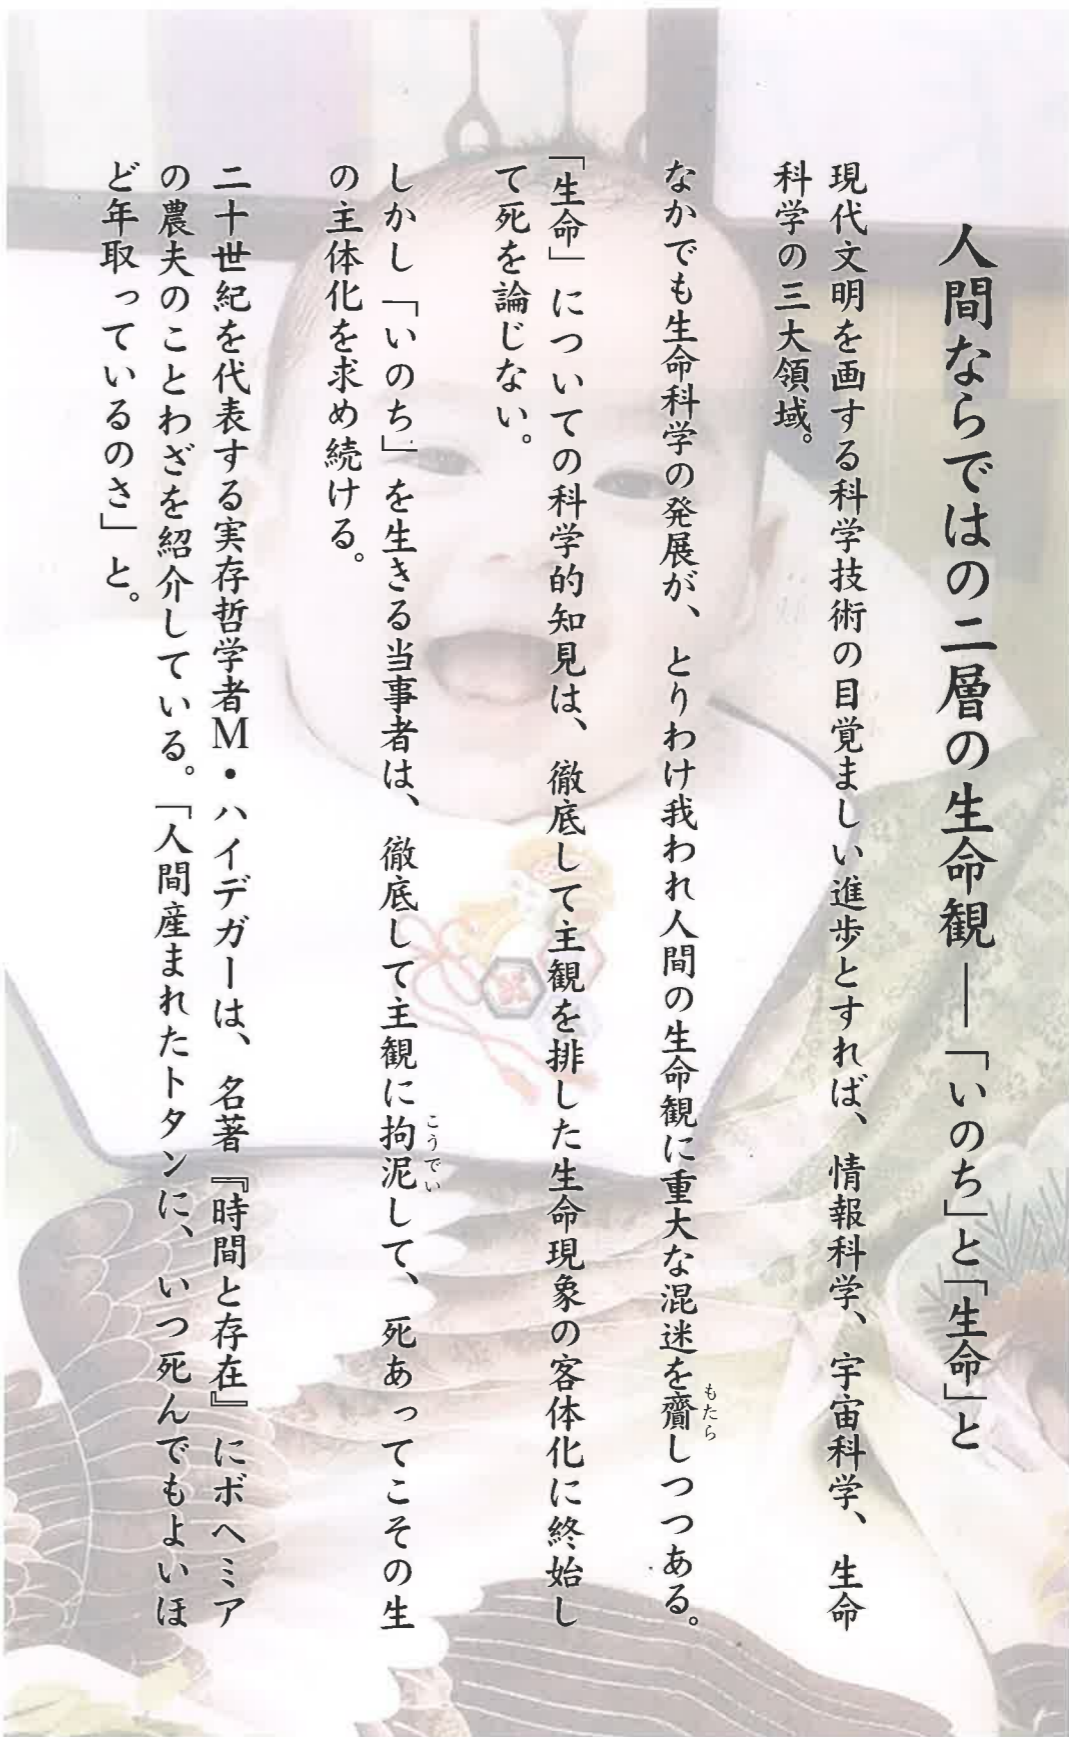 人間ならではの二層の生命観──「いのち」と「生命」と
現代文明を画する科学技術の目覚ましい進歩とすれば、情報科学、宇宙科学、生命
科学の三大領域。
なかでも生命科学の発展が、とりわけ我われ人間の生命観に重大な混迷を齎しつつある。
もたら
「生命」についての科学的知見は、徹底して主観を排した生命現象の客体化に終始し
て死を論じない。
しかし「いのち」を生きる当事者は、徹底して主観に拘泥して、死あってこその生
こうでい
の主体化を求め続ける。
二十世紀を代表する実存哲学者M・ハイデガーは、名著『時間と存在』にボヘミア
の農夫のことわざを紹介している。「人間産まれたトタンに、いつ死んでもよいほ
ど年取っているのさ」と。